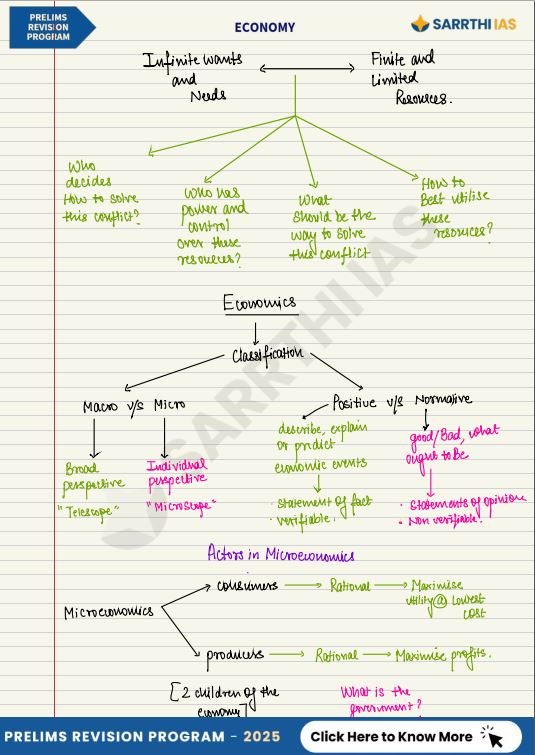 PRELIMS
REVISION
PROGRAM
ECONOMY
SARRTHI IAS
Infinite wants
and
Needs
Finite and
Limited
Resources.
Who
decides
How to solve
this conflict?
Who has
power and
control
over these
resources?
What
should be the
way to solve
this conflict
How to
Best utilise
these
resources?
Economics
Classification
Macro v/s Micro
Positive v/s Normative
Broad
perspective
"Telescope"
Individual
perspective
"Microscope"
describe, explain
or predict
economic events
· Statement of fact
verifiable.
good/Bad, what
ought to be
· Statements of opinion
· Non verifiable.
SARRTHI IAS
Actors in Microeconomics
Microeconomics
consumers
Rational
Maximise
utility @ Lowest
cost
producers
Rational
Maximise profits.
[2 children of the
economy]
What is the
government?
PRELIMS REVISION PROGRAM - 2025
Click Here to Know More